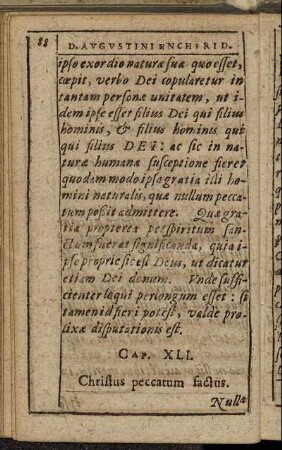 88
D. AVGVSTINI ENCHIRID.
ipso exordio naturæ suæ quo esset,
cœpit, verbo Dei copularetur in
tantam personæ unitatem, ut i-
dem ipse esset filius Dei qui filius
hominis, & filius hominis qui
qui filius DEI: ac sic in na-
turæ humanæ susceptione fieret
quodammodo ipsa gratia illi ho-
mini naturalis, qua nullum pecca-
tum possit admittere. Quæ gra-
tia propterea per spiritum san-
ctum fuerat significanda, quia i-
pse proprie sic est Deus, ut dicatur
etiam Dei donum. Vnde suffi-
cienter loqui perlongum esset: si
tamen id fieri potest, valde pro-
lixæ disputationis est.
CAP. XLI.
Christus peccatum factus.
Nulla